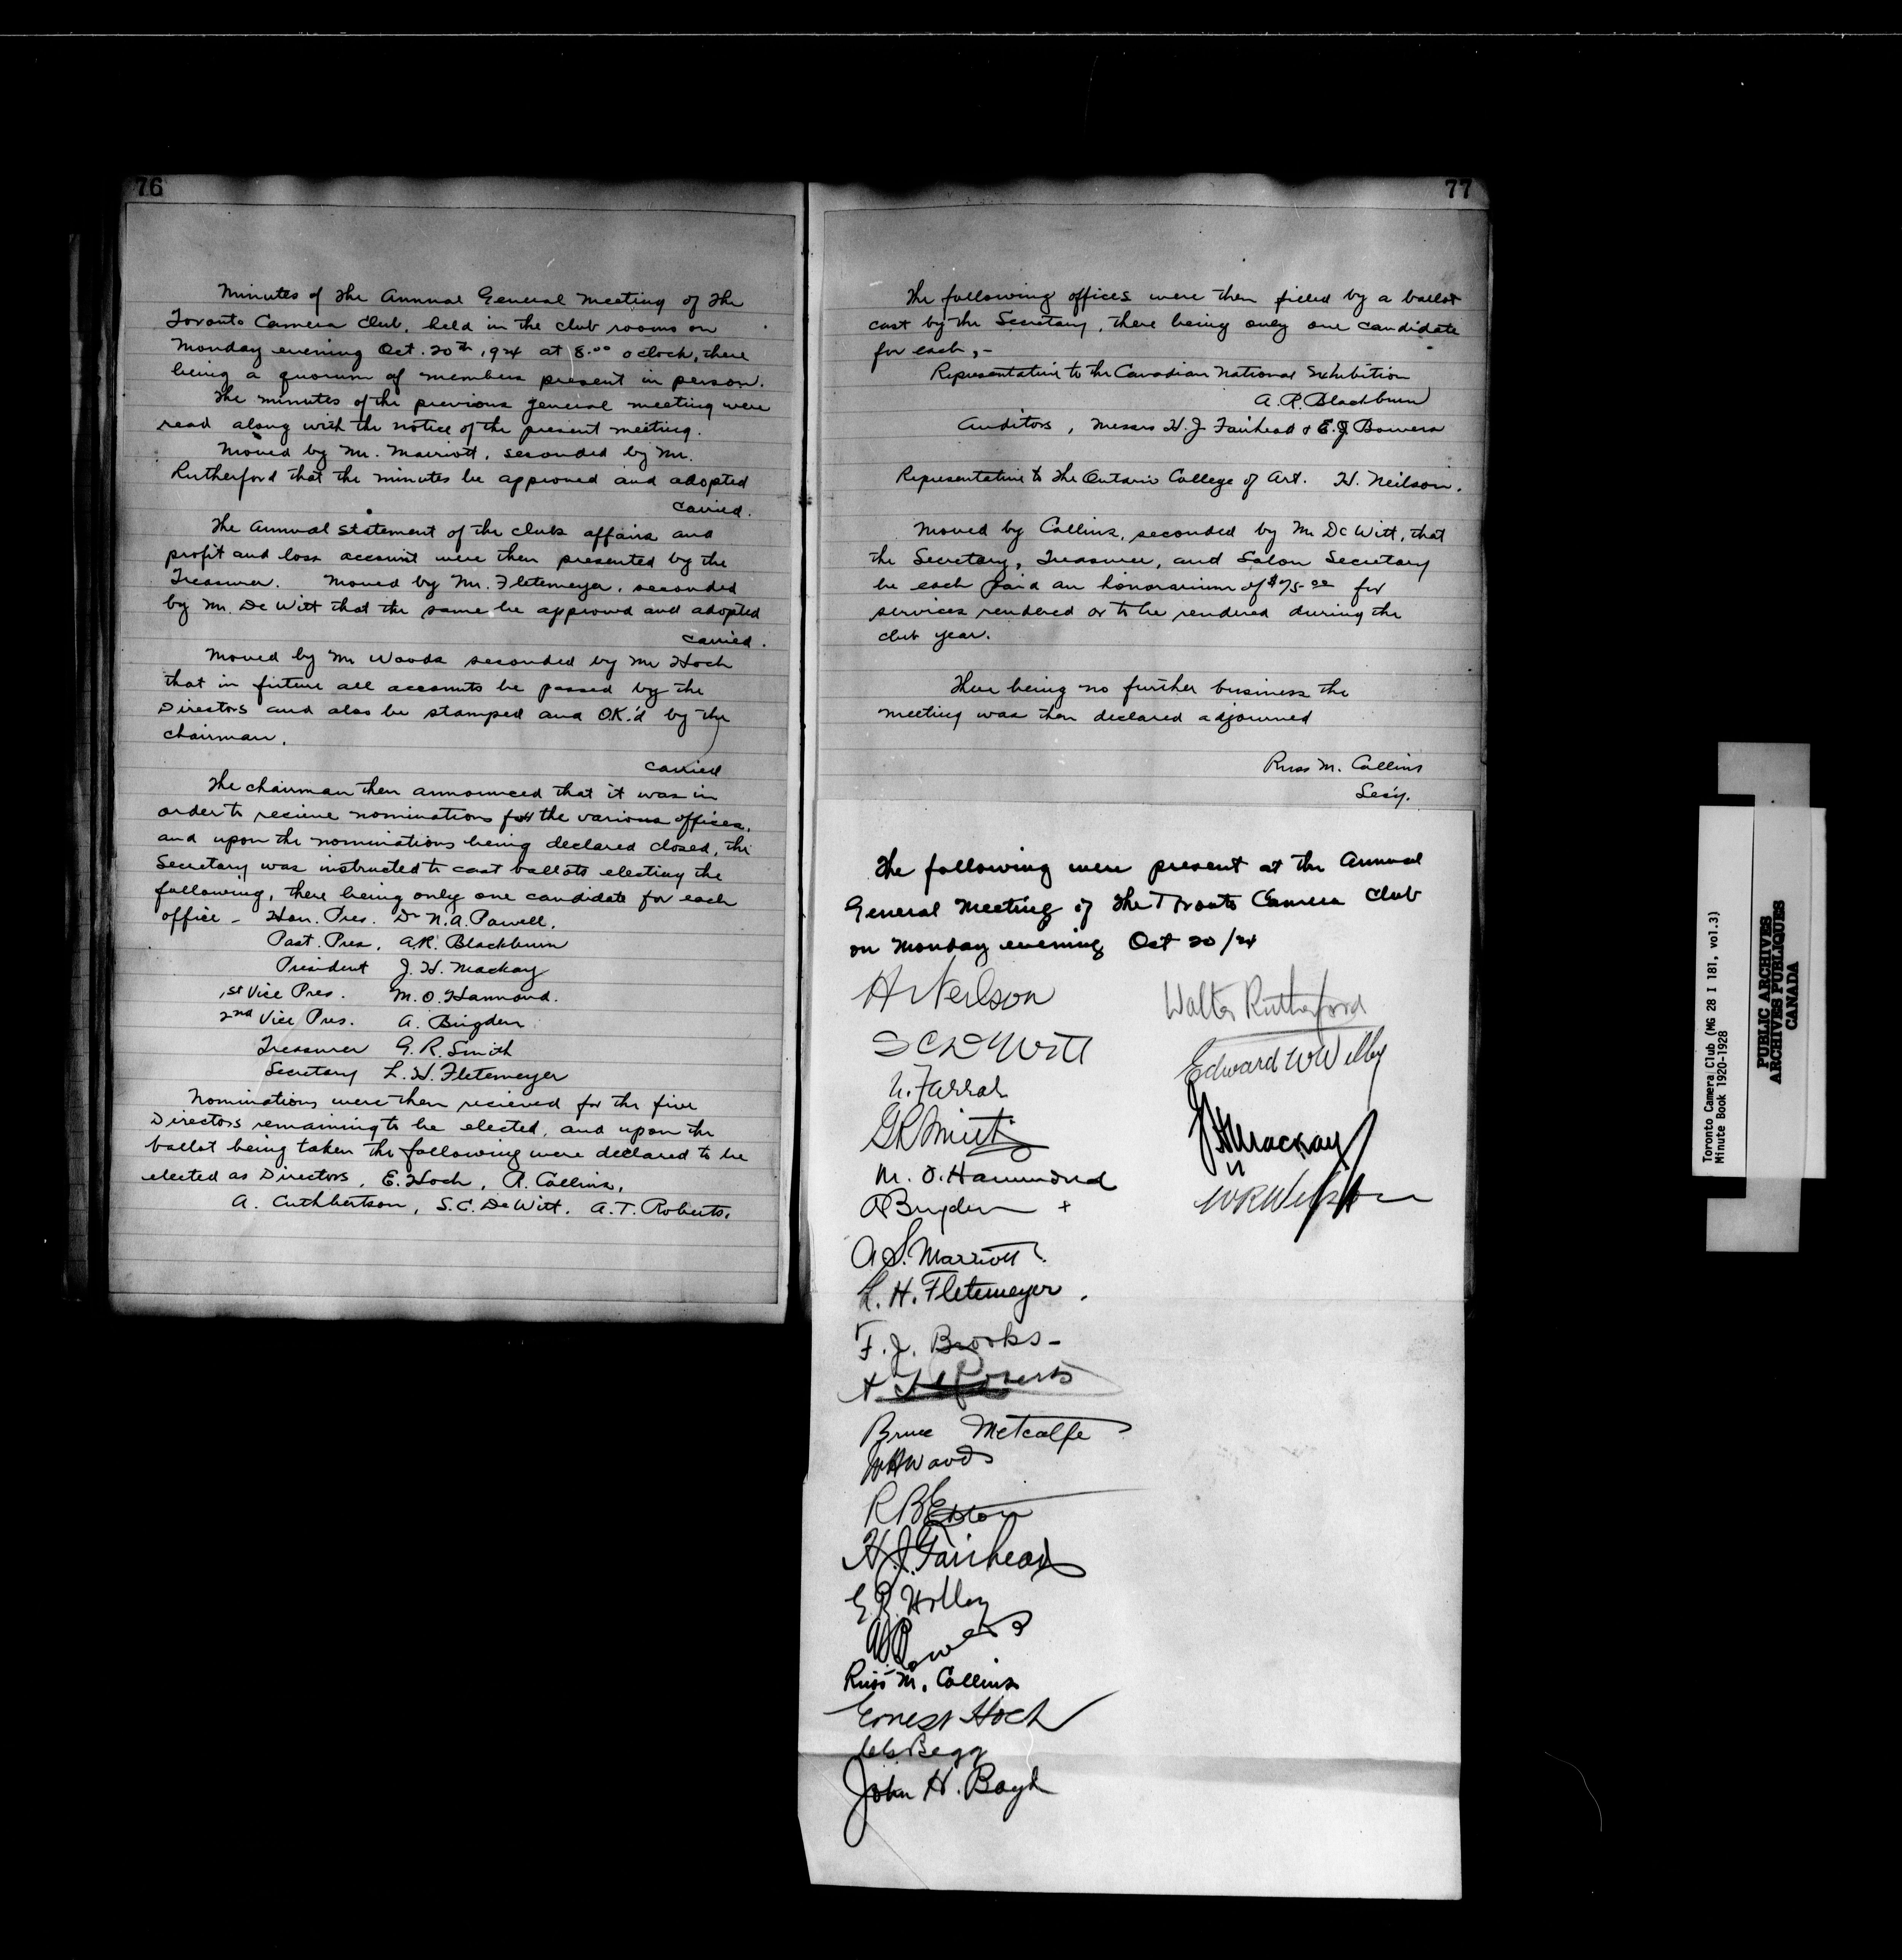 76
Minutes of the Annual General Meeting of the
Toronto Camera Club, held in the club rooms on
Monday evening Oct. 20th, 1924 at 8.00 oclock, there
being a quorum of members present in person.
The minutes of the previous general meeting were
read along with the notice of the present meeting.
Moved by Mr. Marriott, seconded by Mr.
Rutherford that the minutes be approved and adopted
Carried.
The annual statement of the clubs affairs and
profit and loss account were then presented by the
Treasurer. Moved by Mr. Fletemeyer, seconded
by Mr. De Witt that the same be approved and adopted
Carried.
Moved by Mr Woods seconded by Mr Hoch
that in future all accounts be passed by the
Directors and also be stamped and OK.'d by the
chairman.
Carried
The chairman then announced that it was in
order to recieve nominations for the various offices,
and upon the nominations being declared closed, the
Secretary was instructed to cast ballots electing the
following, there being only one candidate for each
office - Hon. Pres. Dr N. A. Powell.
Past. Pres, A.R. Blackburn
President J. H. Mackay
1st Vice Pres. M. O. Hammond.
2nd Vice Pres. A. Brigden
Treasurer G. R. Smith
Secretary L. H. Fletemeyer
Nominations were then recieved for the five
Directors remaining to be elected, and upon the
ballot being taken the following were declared to be
elected as Directors, E. Hoch, R. Collins,
A. Cuthbertson, S.C. De Witt. A.T. Roberts.
77
The following offices were then filled by a ballot
cast by the Secretary, there being only one candidate
for each, -
Representative to the Canadian National Exhibition
A. R. Blackburn
Auditors, Messrs H. J Fairhead & E. J Bowers
Representative to the Ontario College of Art. H. Neilson.
Moved by Collins, seconded by Mr De Witt, that
the Secretary, Treasurer, and Salon Secretary
be each paid an honorarium of $75.00 for
services rendered or to be rendered during the
club year.
There being no further business the
meeting was then declared adjourned
Russ M. Collins
Secy.
The following were present at the Annual
General Meeting of the Toronto Camera Club
on Monday evening Oct 20/24
H Neilson
S C DeWitt
Farrah
G R Smith
M. O. Hammond
A Brigden +
A S. Marriott.
L. H. Fletemeyer.
F. J. Brooks -
A T Roberts
Bruce Metcalfe
Woods
R B
H. J. Fairhead
Bowers
Russ M. Collins
Ernest Hoch
Begg
John H. Boyd
Walter Rutherford
Edward W Wilby
J H Mackay
"
Toronto Camera Club (MG 28 I 181, vol.3)
Minute Book 1920-1928
PUBLIC ARCHIVES
ARCHIVES PUBLIQUES
CANADA